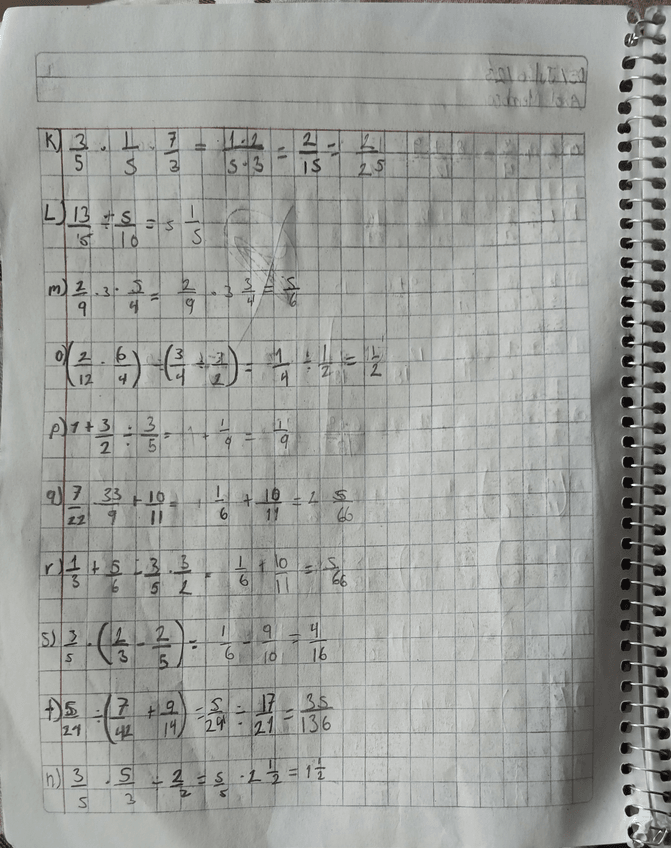 K) 3/5 · 1/5 · 7/3 = 1·2/5·3 = 2/15 = 2/25
L) 13/5 ÷ 5/10 = 5 1/5
m) 2/9 · 3 · 5/4 = 2/9 · 3 3/4 = 5/6
o) (2/12 · 6/4) ÷ (3/4 ÷ 3/2) = 1/4 ÷ 1/2 = 1/2
p) 1 + 3/2 ÷ 3/5 = 1 + 1/9 = 1/9
q) 7/22 · 33/9 + 10/11 = 1/6 + 10/11 = 2 5/66
r) 1/3 + 5/6 - 3/5 · 3/2 = 1/6 + 10/11 = 5/66
s) 3/5 · (2/3 - 2/5) = 1/6 - 9/10 = 4/16
t) 5/24 ÷ (7/42 + 9/14) = 5/24 ÷ 17/21 = 35/136
n) 3/5 · 5/3 ÷ 2/2 = 5/5 · 2 1/2 = 1 1/2